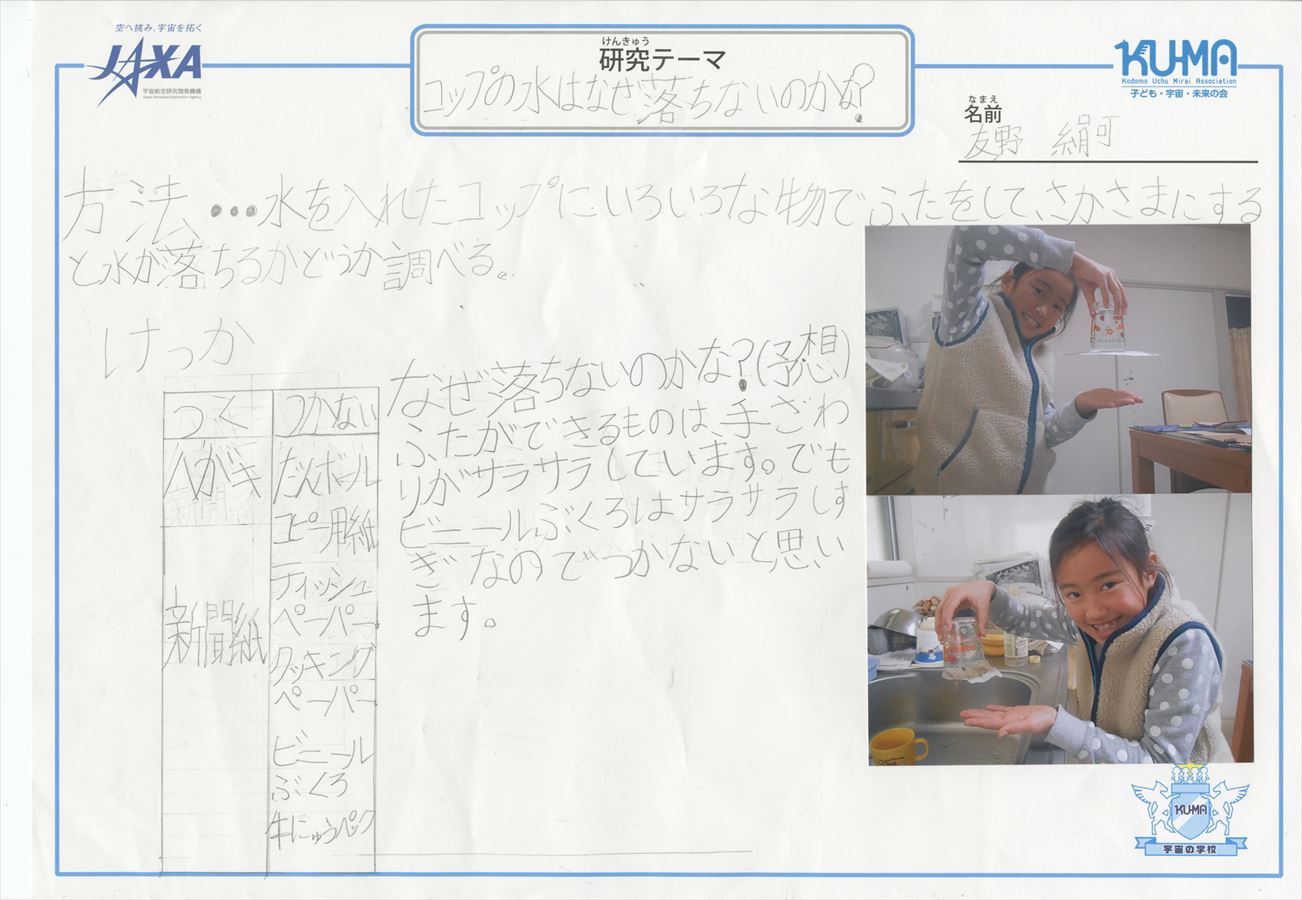 空へ挑み、宇宙を拓く
JAXA
宇宙航空研究開発機構
Japan Aerospace Exploration Agency
けんきゅう
研究テーマ
コップの水はなぜ落ちないのかな?
KU-MA
Kodomo Uchu Mirai Association
子ども・宇宙・未来の会
なまえ
名前
友野 絹可
方法…水を入れたコップにいろいろな物でふたをして、さかさまにする
と水が落ちるかどうか調べる。
けっか
つく
つかない
ハガキ
だんボール
コピー用紙
ティッシュ
ペーパー
新聞紙
クッキング
ペーパー
ビニール
ぶくろ
牛にゅうパック
なぜ落ちないのかな?(予想)
ふたができるものは、手ざわ
りがサラサラしています。でも
ビニールぶくろはサラサラしす
ぎなのでつかないと思い
ます。
KU-MA
宇宙の学校